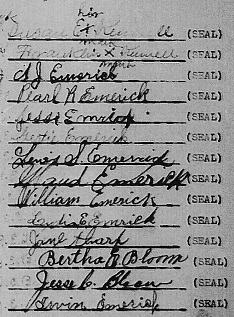 her
Susan X (SEAL)
mark
X (SEAL)
mark
A J Emerick (SEAL)
Pearl R Emerick (SEAL)
Jesse Emerick (SEAL)
Emerick (SEAL)
Lena S. Emerick (SEAL)
Maud Emerick (SEAL)
William Emerick (SEAL)
Lydia E Emerick (SEAL)
Jane Sharp (SEAL)
Bertha B Bloom (SEAL)
Jesse C. Bloom (SEAL)
Irwin Emerick (SEAL)